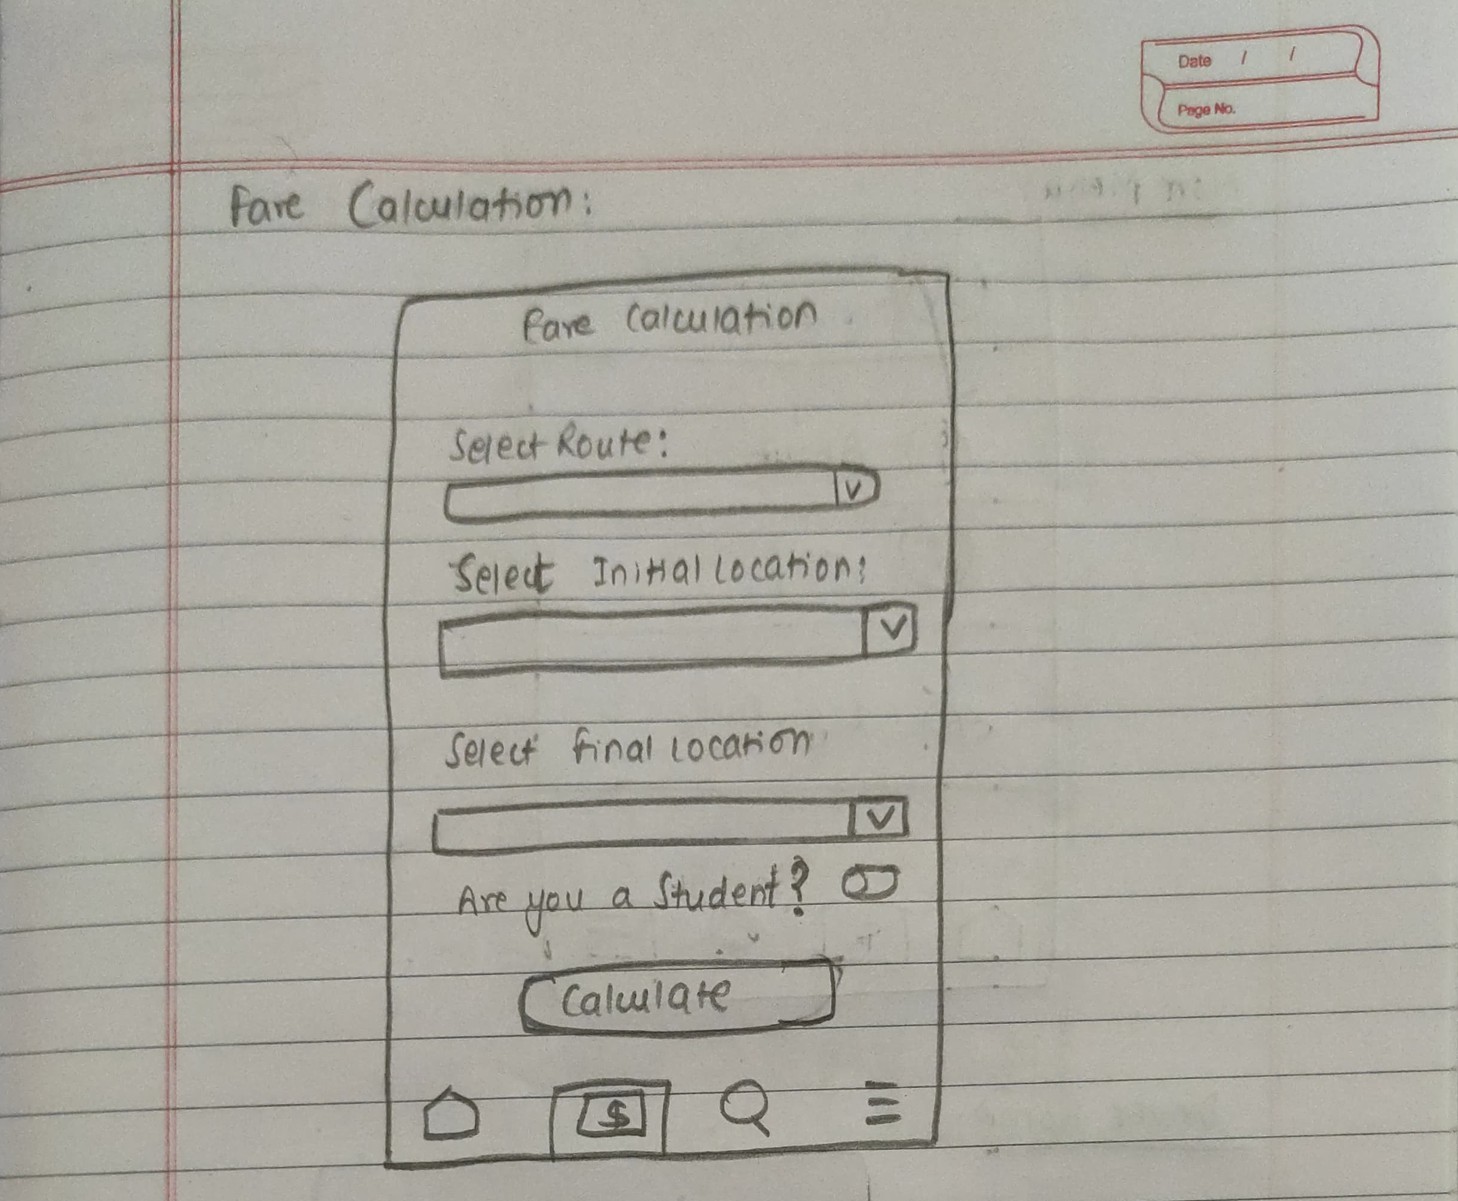 Date / /
Page No.
Fare Calculation:
Fare Calculation
Select Route:
V
Select Initial Location:
V
Select Final Location
V
Are you a Student?
Calculate
$